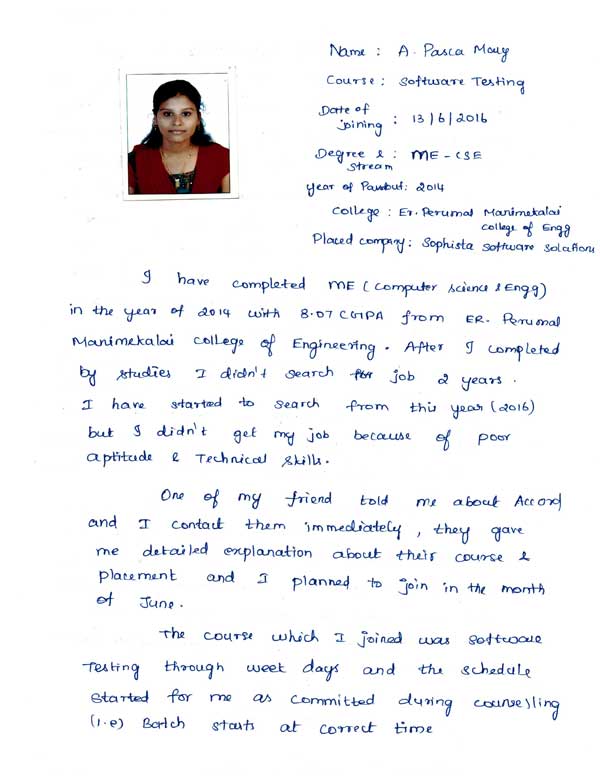 Name : A. Pasca Mary
Course : Software Testing
Date of
joining : 13/6/2016
Degree & : ME - CSE
Stream
year of Passout : 2014
College : Er. Perumal Manimekalai
College of Engg
Placed company : Sophista Software Solations
I have completed ME ( Computer Science & Engg)
in the year of 2014 with 8.07 CGPA from ER. Perumal
Manimekalai College of Engineering. After I completed
by studies I didn't search for job 2 years.
I have started to search from this year (2016)
but I didn't get my job because of poor
aptitude & Technical skills.
One of my friend told me about Accord
and I contact them immediately, they gave
me detailed explanation about their course &
placement and I planned to join in the month
of June.
The course which I joined was software
Testing through week days and the schedule
started for me as committed during counselling
(i.e) Batch starts at correct time